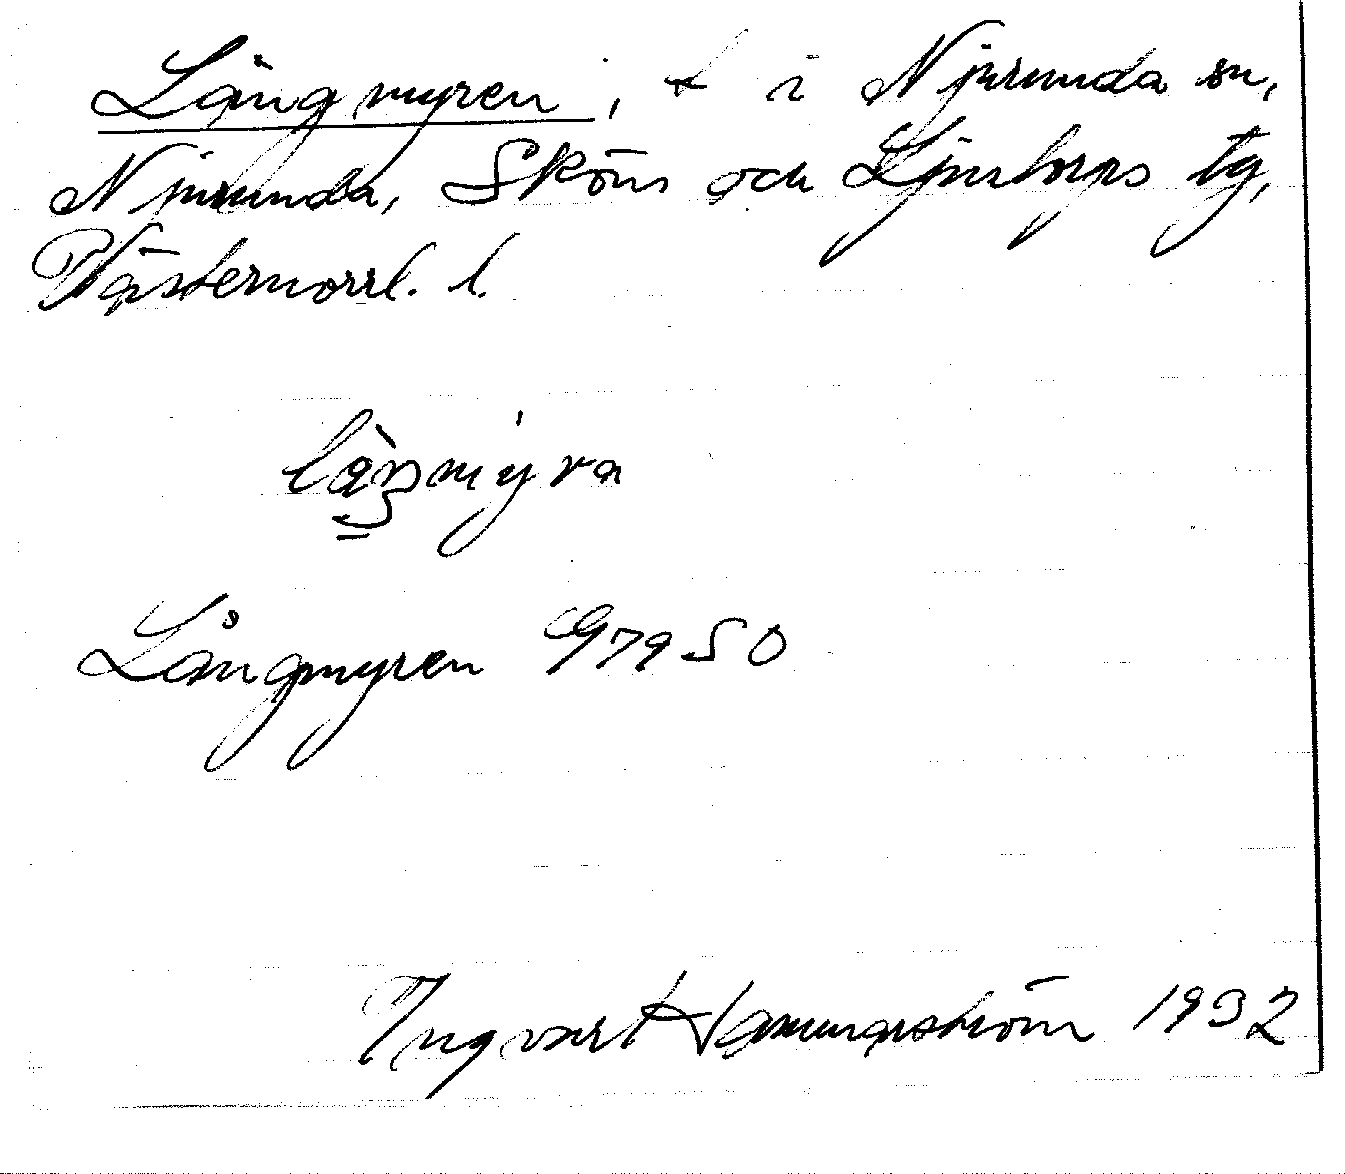 Långmyren, t i Njurunda sn,
Njurunda, Sköns och Ljustorps tg,
Västernorrl. l.
Långmyren G7950
Ingvart Hammarström 1932